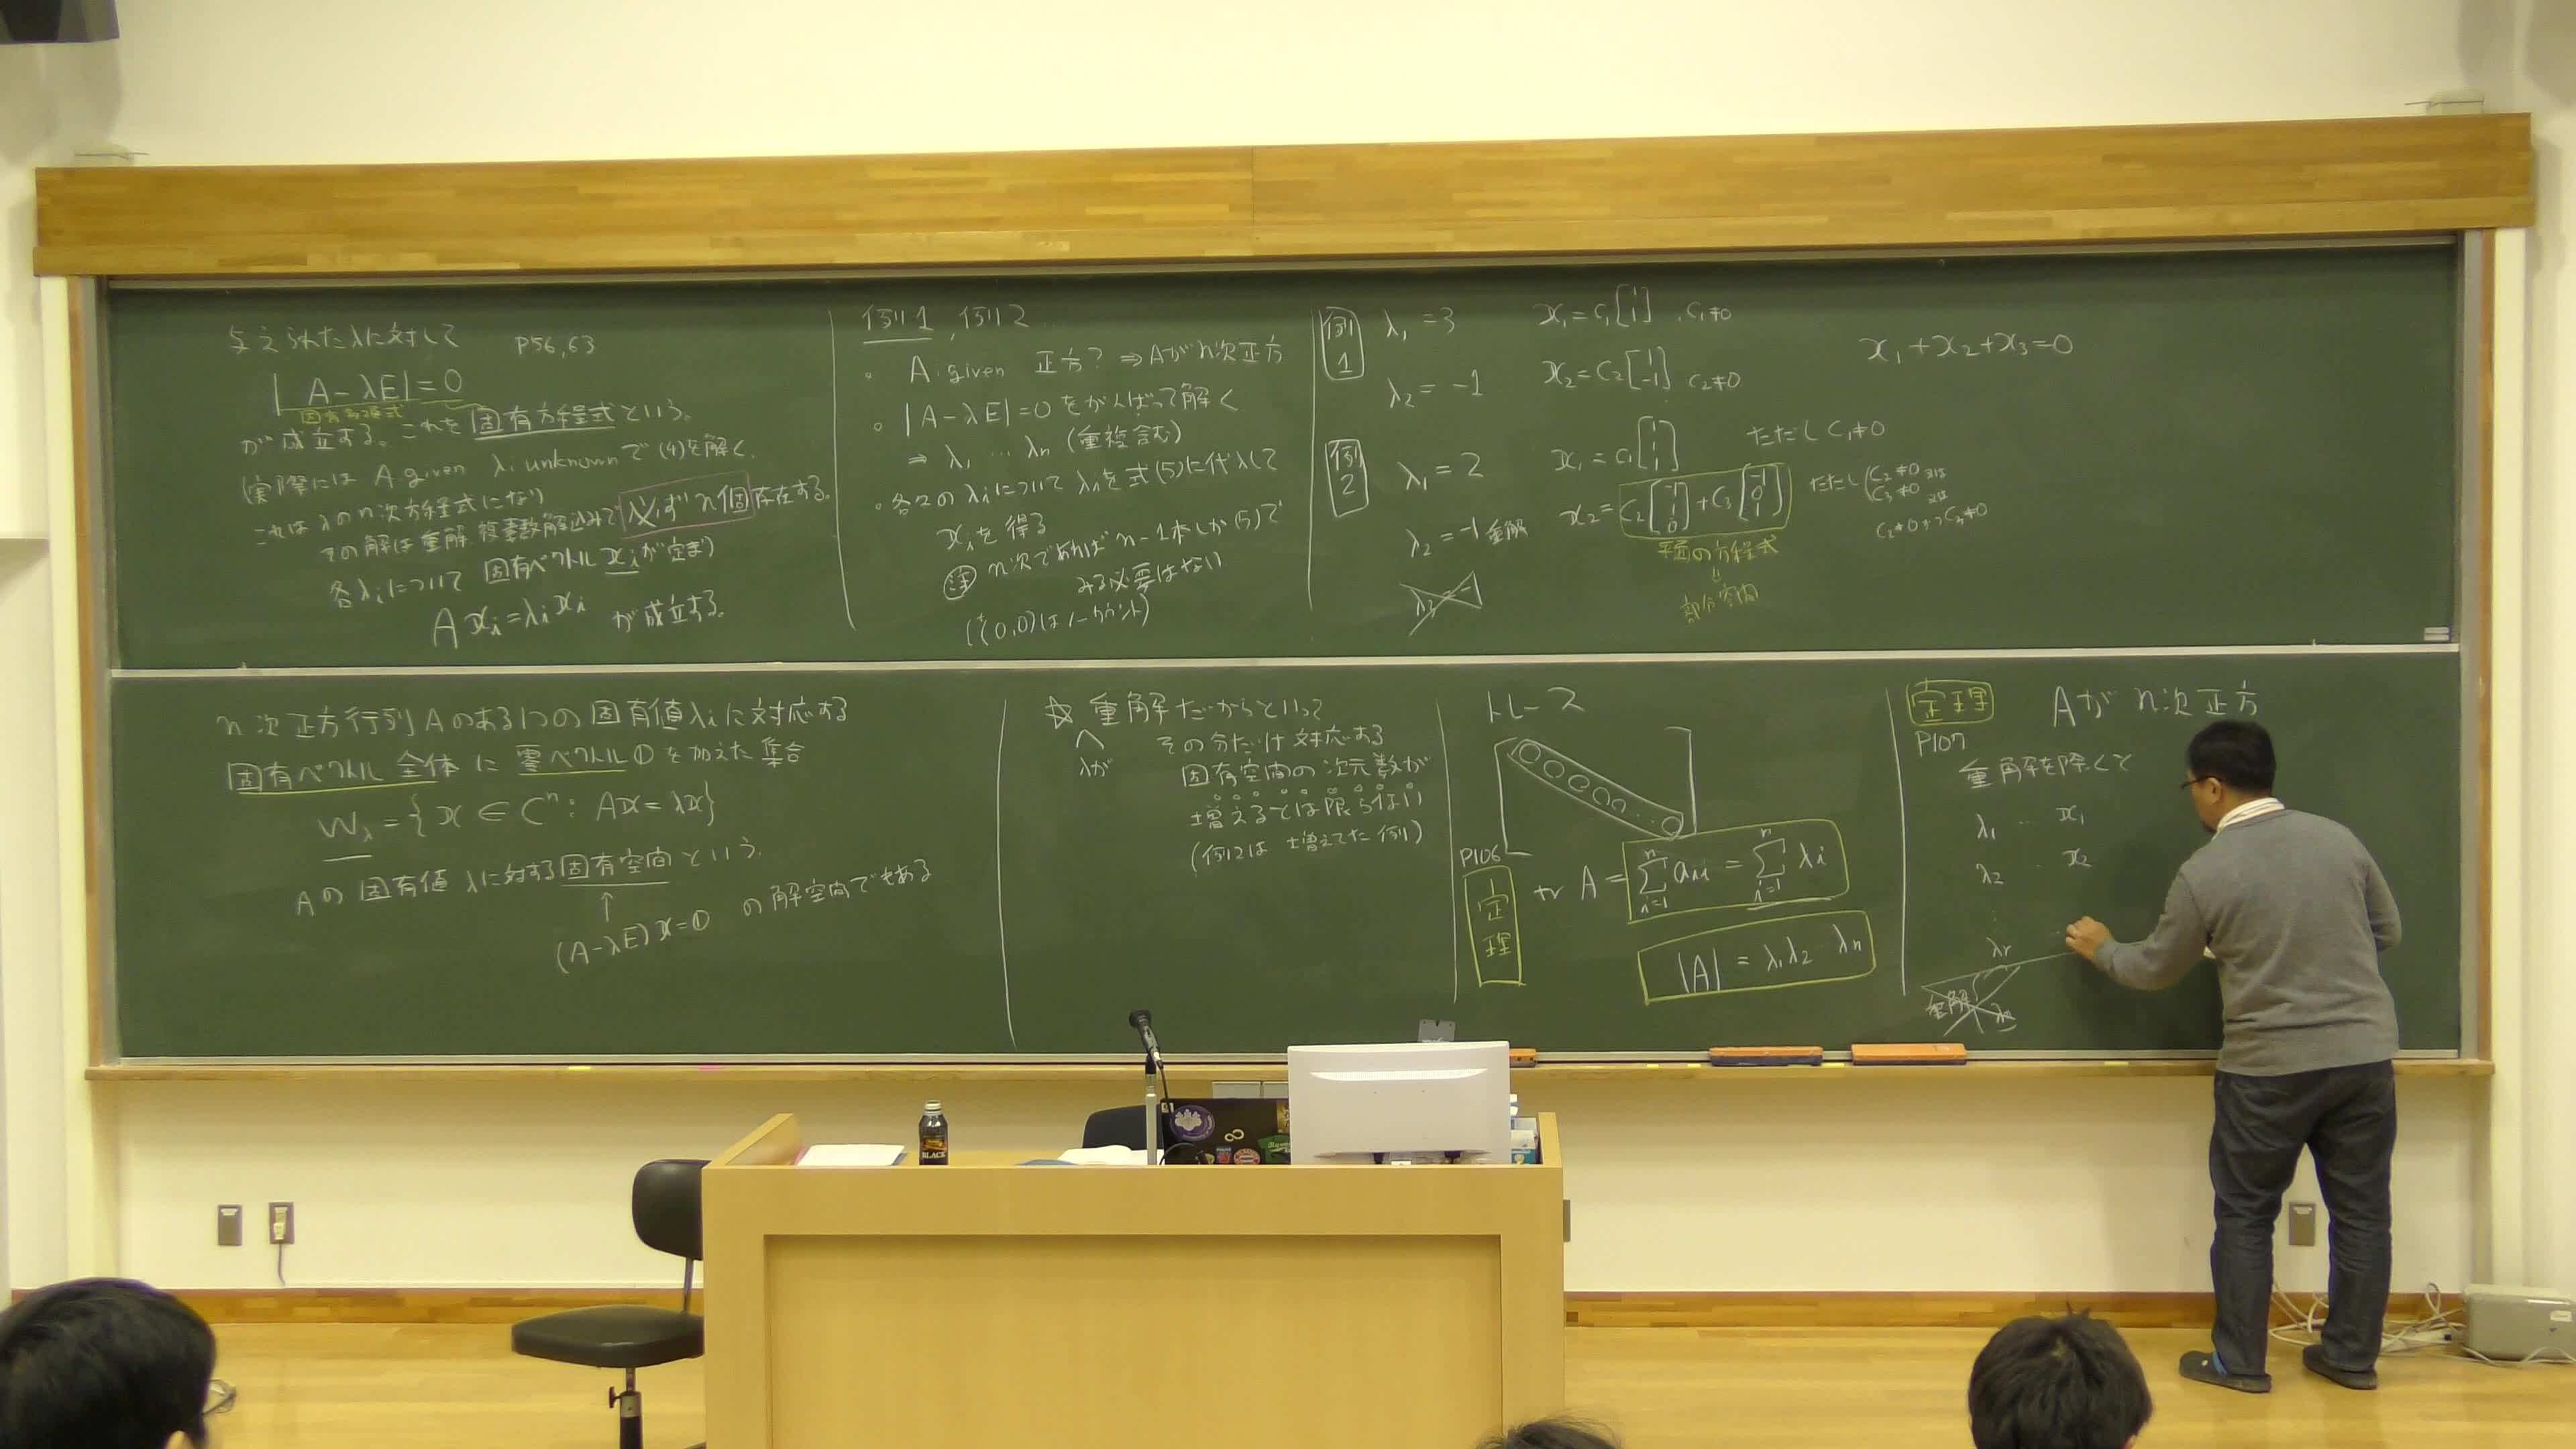 与えられたλに対して P56,63
|A-λE|=0
固有多項式
が成立する。これを固有方程式という。
(実際には A:given λ:unknownで(4)を解く。
これはλのn次方程式になり
その解は重解、複素数解込みで必ずn個存在する。
各λiについて 固有ベクトル xiが定まり
Axi=λixi が成立する。
例1, 例2
。 A:given 正方? ⇒Aがn次正方
。 |A-λE|=0をがんばって解く
⇒ λ1 … λn (重複含む)
・各々のλiについて λiを式(5)に代入して
xiを得る
注 n次であれば n-1本しか(5)で
みる必要はない
(0,0)はノーカウント)
例1 λ1=3 x1=c1[1 1], c1≠0
λ2=-1 x2=c2[1 -1] c2≠0
x1+x2+x3=0
例2 λ1=2 x1=c1[1 1 1] ただし c1≠0
λ2=-1重解 x2=c2[-1 1 0]+c3[-1 0 1] ただし(c2≠0 又は
c3≠0 又は
c2≠0かつc3≠0
平面の方程式
部分空間
λ3=-1
n次正方行列Aのある1つの固有値λiに対応する
固有ベクトル全体に零ベクトル0を加えた集合
Wλ={x∈C^n: Ax=λx}
Aの固有値λに対する固有空間という。
↑
(A-λE)x=0 の解空間でもある
☆重解だからといって
λが
その分だけ対応する
固有空間の次元数が
増えるとは限らない
(例2は増えてた例)
トレース
P106
定理
tr A=Σ_{i=1}^{n} aii=Σ_{i=1}^{n} λi
|A|=λ1λ2…λn
定理 Aがn次正方
P107
重解を除くて
λ1 … x1
λ2 … x2
⋮
λr
重解 λn
BLACK